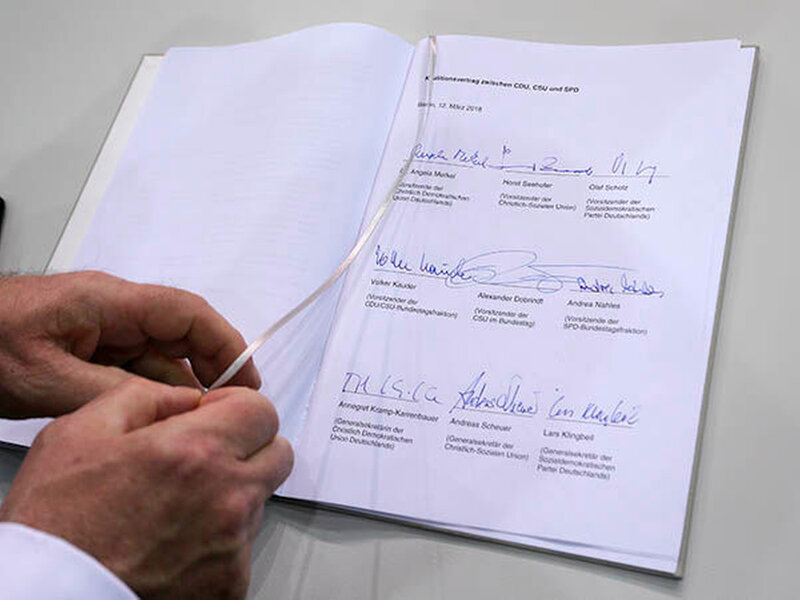 Koalitionsvertrag zwischen CDU, CSU und SPD
Berlin, 12. März 2018
Angela Merkel
Angela Merkel Horst Seehofer Olaf Scholz
(Vorsitzende der (Vorsitzender der (Vorsitzender der
Christlich Demokratischen Christlich-Sozialen Union) Sozialdemokratischen
Union Deutschlands) Partei Deutschlands)
Volker Kauder Andrea Nahles
Volker Kauder Alexander Dobrindt Andrea Nahles
(Vorsitzender der (Vorsitzender der (Vorsitzende der
CDU/CSU-Bundestagsfraktion) CSU im Bundestag) SPD-Bundestagsfraktion)
Andreas Scheuer Lars Klingbeil
Annegret Kramp-Karrenbauer Andreas Scheuer Lars Klingbeil
(Generalsekretärin der (Generalsekretär der (Generalsekretär der
Christlich Demokratischen Christlich-Sozialen Union) Sozialdemokratischen
Union Deutschlands) Partei Deutschlands)